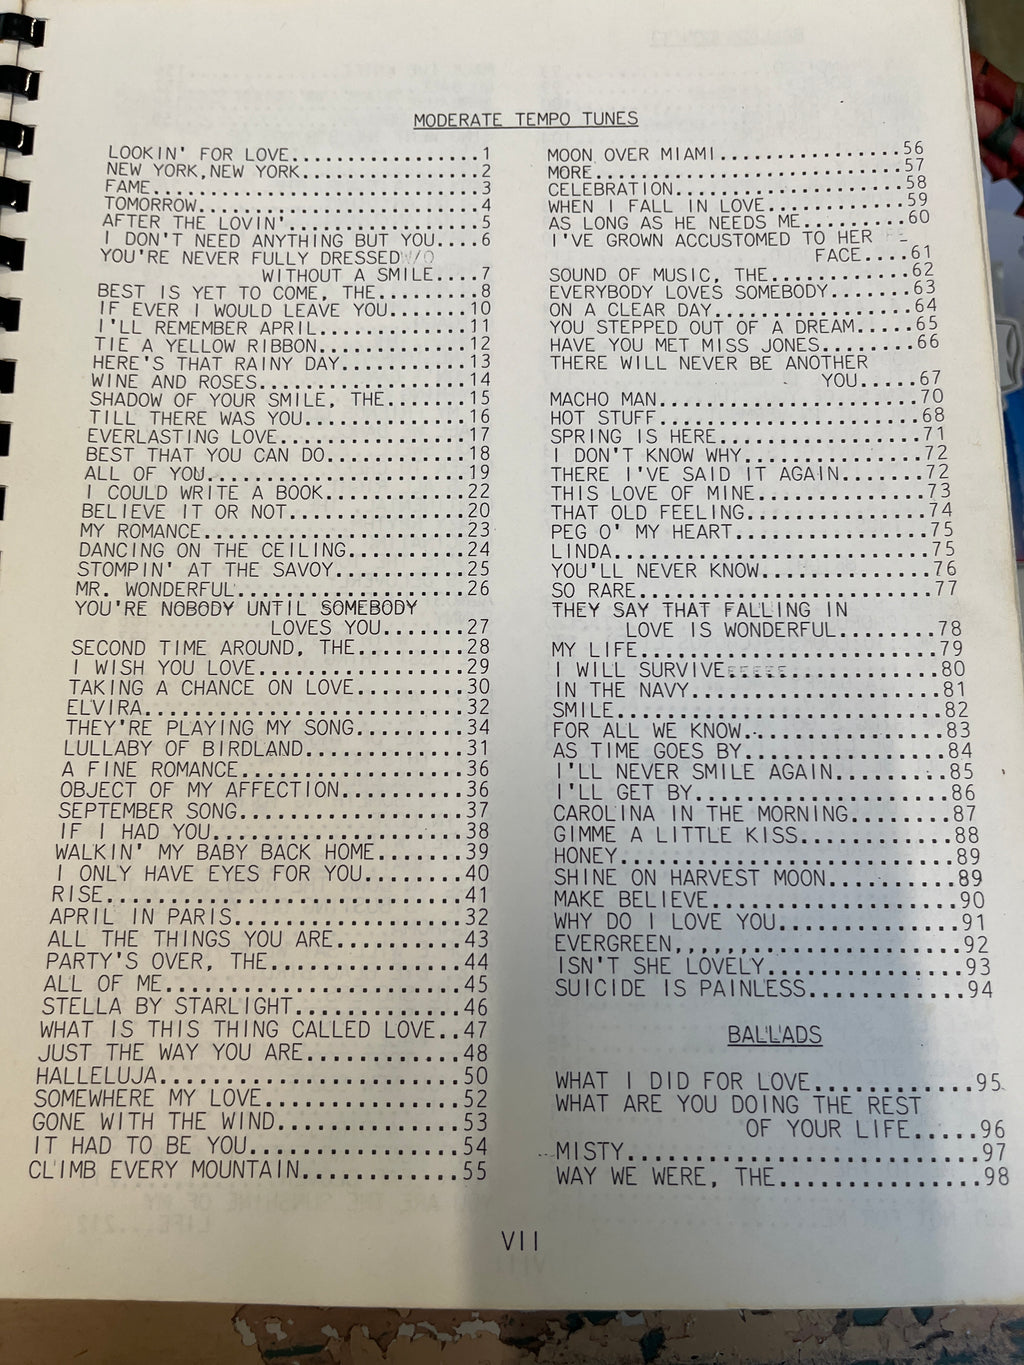 MODERATE TEMPO TUNES
LOOKIN' FOR LOVE.................1
NEW YORK,NEW YORK................2
FAME.............................3
TOMORROW.........................4
AFTER THE LOVIN'.................5
I DON'T NEED ANYTHING BUT YOU....6
YOU'RE NEVER FULLY DRESSED W/O
WITHOUT A SMILE....7
BEST IS YET TO COME, THE.........8
IF EVER I WOULD LEAVE YOU........10
I'LL REMEMBER APRIL..............11
TIE A YELLOW RIBBON..............12
HERE'S THAT RAINY DAY............13
WINE AND ROSES...................14
SHADOW OF YOUR SMILE, THE.......15
TILL THERE WAS YOU...............16
EVERLASTING LOVE.................17
BEST THAT YOU CAN DO.............18
ALL OF YOU.......................19
I COULD WRITE A BOOK............22
BELIEVE IT OR NOT................20
MY ROMANCE.......................23
DANCING ON THE CEILING..........24
STOMPIN' AT THE SAVOY...........25
MR. WONDERFUL....................26
YOU'RE NOBODY UNTIL SOMEBODY
LOVES YOU.......27
SECOND TIME AROUND, THE.........28
I WISH YOU LOVE..................29
TAKING A CHANCE ON LOVE.........30
ELVIRA...........................32
THEY'RE PLAYING MY SONG.........34
LULLABY OF BIRDLAND.............31
A FINE ROMANCE...................36
OBJECT OF MY AFFECTION..........36
SEPTEMBER SONG...................37
IF I HAD YOU.....................38
WALKIN' MY BABY BACK HOME.......39
I ONLY HAVE EYES FOR YOU........40
RISE.............................41
APRIL IN PARIS...................32
ALL THE THINGS YOU ARE..........43
PARTY'S OVER, THE................44
ALL OF ME........................45
STELLA BY STARLIGHT..............46
WHAT IS THIS THING CALLED LOVE..47
JUST THE WAY YOU ARE............48
HALLELUJA........................50
SOMEWHERE MY LOVE................52
GONE WITH THE WIND...............53
IT HAD TO BE YOU.................54
CLIMB EVERY MOUNTAIN............55
MOON OVER MIAMI.................56
MORE.............................57
CELEBRATION......................58
WHEN I FALL IN LOVE.............59
AS LONG AS HE NEEDS ME..........60
I'VE GROWN ACCUSTOMED TO HER
FACE....61
SOUND OF MUSIC, THE.............62
EVERYBODY LOVES SOMEBODY........63
ON A CLEAR DAY...................64
YOU STEPPED OUT OF A DREAM......65
HAVE YOU MET MISS JONES.........66
THERE WILL NEVER BE ANOTHER
YOU.....67
MACHO MAN........................70
HOT STUFF........................68
SPRING IS HERE...................71
I DON'T KNOW WHY.................72
THERE I'VE SAID IT AGAIN........72
THIS LOVE OF MINE................73
THAT OLD FEELING.................74
PEG O' MY HEART..................75
LINDA............................75
YOU'LL NEVER KNOW................76
SO RARE..........................77
THEY SAY THAT FALLING IN
LOVE IS WONDERFUL........78
MY LIFE..........................79
I WILL SURVIVE...................80
IN THE NAVY......................81
SMILE............................82
FOR ALL WE KNOW..................83
AS TIME GOES BY..................84
I'LL NEVER SMILE AGAIN..........85
I'LL GET BY......................86
CAROLINA IN THE MORNING.........87
GIMME A LITTLE KISS.............88
HONEY............................89
SHINE ON HARVEST MOON...........89
MAKE BELIEVE.....................90
WHY DO I LOVE YOU................91
EVERGREEN........................92
ISN'T SHE LOVELY.................93
SUICIDE IS PAINLESS.............94
BALLADS
WHAT I DID FOR LOVE.............95
WHAT ARE YOU DOING THE REST
OF YOUR LIFE.....96
MISTY............................97
WAY WE WERE, THE.................98
VII